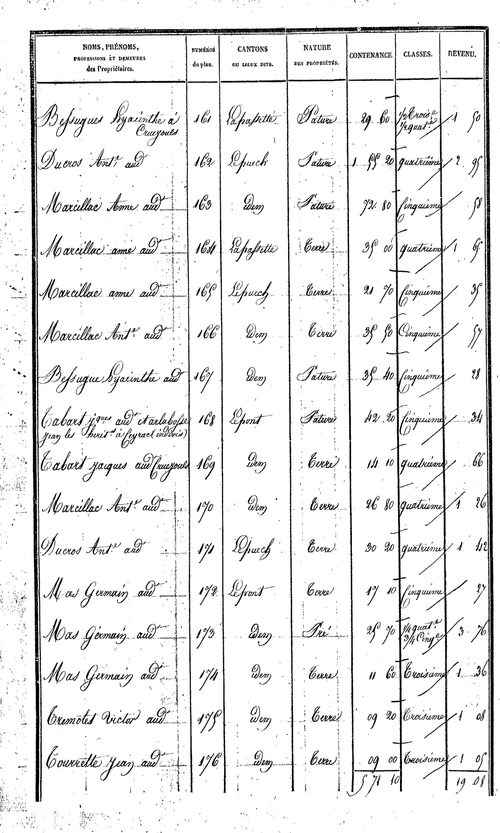 NOMS, PRÉNOMS, PROFESSIONS ET DEMEURES des Propriétaires. NUMÉROS du plan. CANTONS OU LIEUX DITS. NATURE DES PROPRIÉTÉS. CONTENANCE. CLASSES. REVENU.
Bessugues Hyacinthe à Cruejouls 161 Lapassette Pature 29 60 1/2 Trois.e 1/2 quat.e 1 50
Ducros Ant.e aud 162 Lepuech Pature 1 55 20 quatrième 2 95
Marcillac Anne aud 163 idem Pature 72 80 Cinquième 58
Marcillac anne aud 164 Lapassette Terre 35 00 quatrième 1 65
Marcillac anne aud 165 Lepuech Terre 21 70 Cinquième 35
Marcillac Ant.e aud 166 idem Terre 35 50 Cinquième 57
Bessugue Hyacinthe aud 167 idem Pature 35 40 Cinquième 28
Tabart j.ques aud et arlabosse jean les 168 Lepont Pature 42 20 Cinquième 34
Tabart jacques aud Cruejouls 169 idem Terre 14 10 quatrième 66
Marcillac Ant.e aud 170 idem Terre 26 80 quatrième 1 26
Ducros Ant.e aud 171 Lepuech Terre 30 20 quatrième 1 42
Mas Germain aud 172 Lepont Terre 17 10 Cinquième 27
Mas Germain aud 173 idem Pré 25 70 1/4 quat.e 3/4 Cinq.e 3 76
Mas Germain aud 174 idem Terre 11 60 Troisième 1 36
Tremolet Victor aud 175 idem Terre 09 20 Troisième 1 08
Tourrette Jean aud 176 idem Terre 09 00 Troisième 1 05
5 71 10 19 08